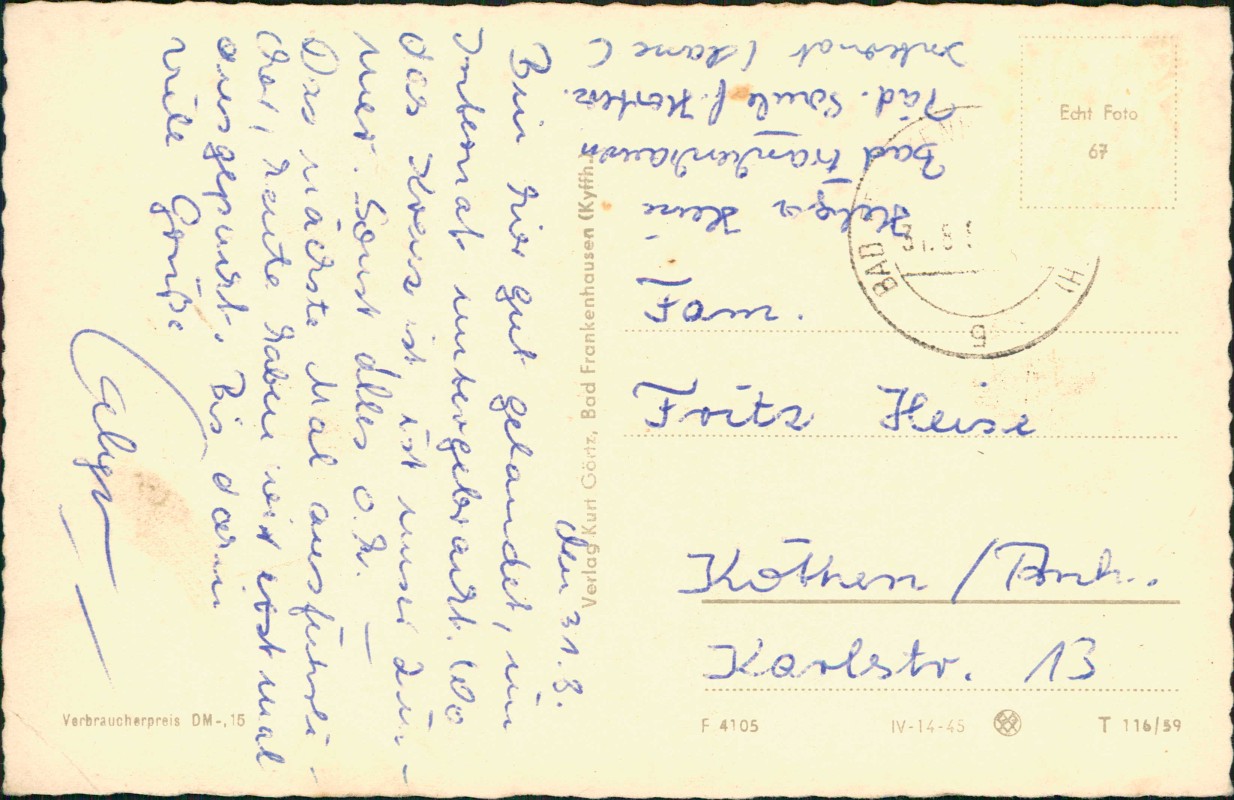 den 31.8.
Bin hier gut gelandet, im
Internat untergebracht. Wo
das Kreuz ist ist unser Zim-
mer. Sonst alles o.k. –
Das nächste Mal ausführli-
cher, heute haben wir erst mal
ausgepackt. Bis dann
viele Grüße
Helga
Verlag Kurt Görtz, Bad Frankenhausen (Kyffh.)
Helga Heise
Bad Frankenhausen
Päd. Schule f.
Internat
Echt Foto
67
BAD
31.8.
An
Fam.
Fritz Heise
Köthen / Anh.
Karlstr. 13
Verbraucherpreis DM -,15
F 4105
IV-14-45
T 116/59